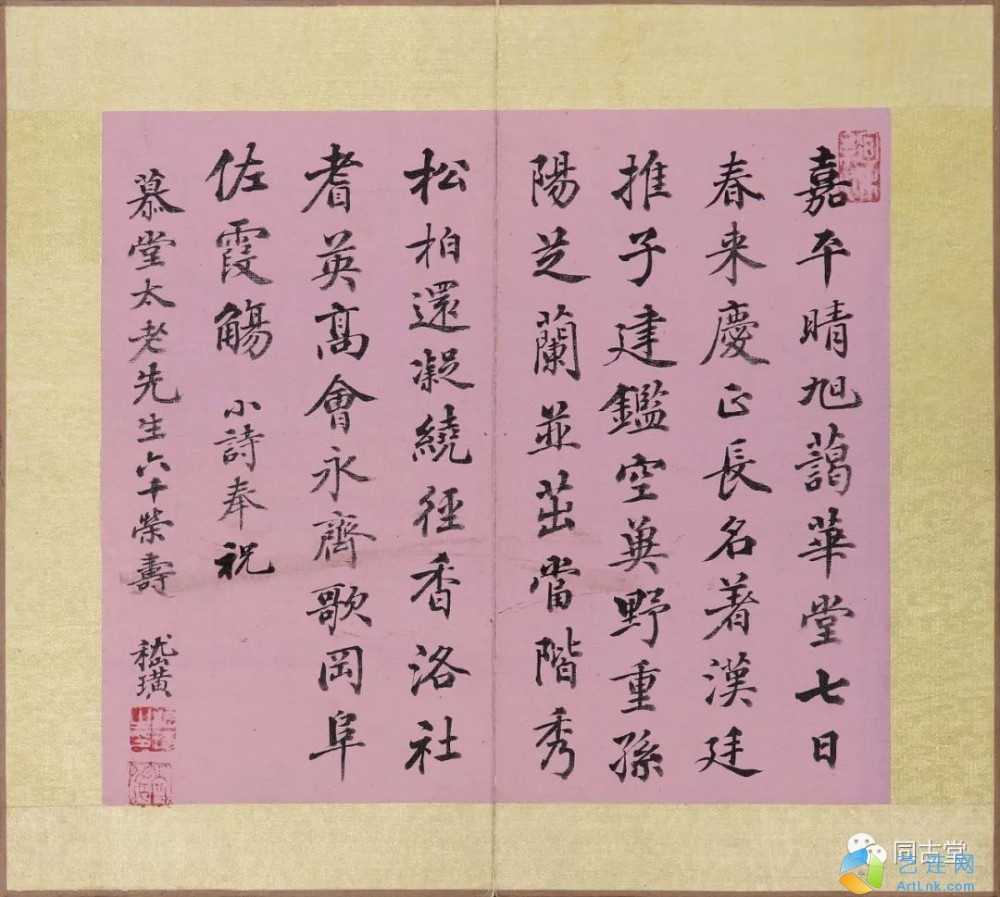 嘉平晴旭藹華堂七日
春来慶正長名著漢廷
推子建鑑空冀野重孫
陽芝蘭並茁當階秀
松柏還凝繞徑香洛社
耆英高會永齊歌岡阜
佐霞觴 小詩奉祝
慕堂太老先生六十榮壽 嵇璜
同古堂
艺连网
ArtLnk.com